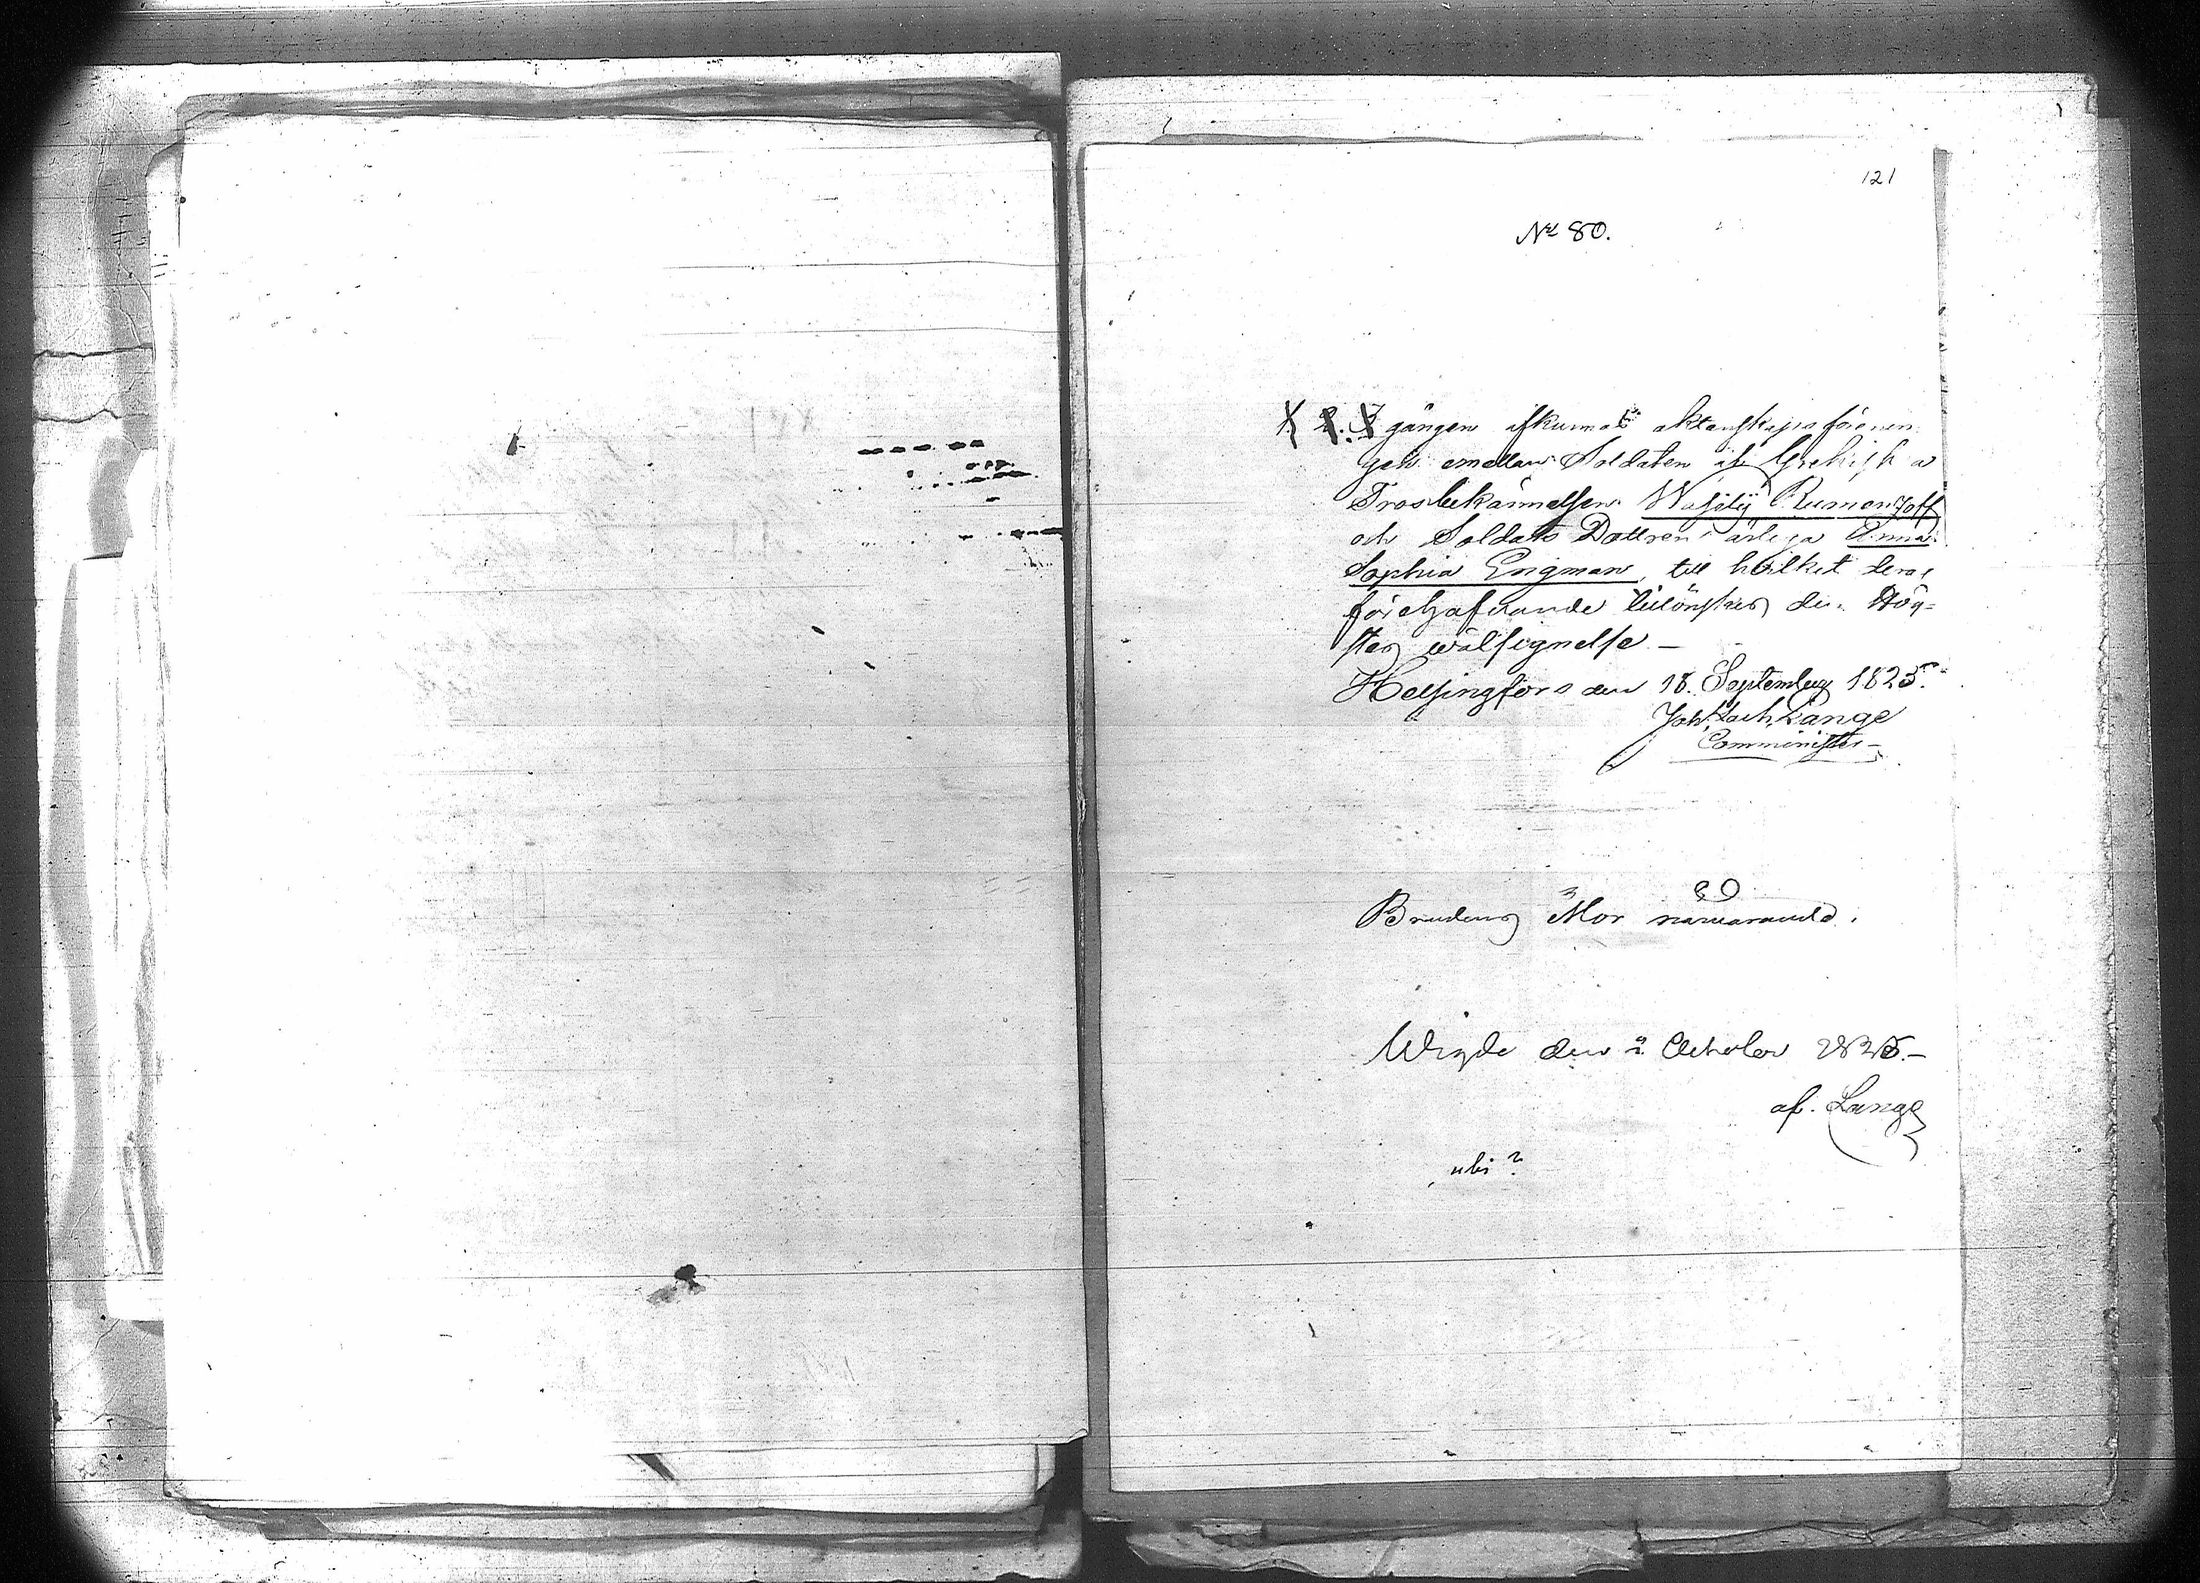 121
No 80.
1. 2. 3 gången afkunnas ektenskaps förenin
gen emellan Soldaten af Grekiska
Trosbekännelsen Wasilij Rumonzoff
och Soldats Dottren ärliga Anna
Sophia Engman, till hvilket deras
förehafvande tillönskas den Hög-
stas wälsignelse –
Helsingfors den 18. September 1825.
Joh. Zach. Lange
Comminister
Brudens Mor närvarande.
Wigde den 2 October 1825. –
af. Lange
ubi?